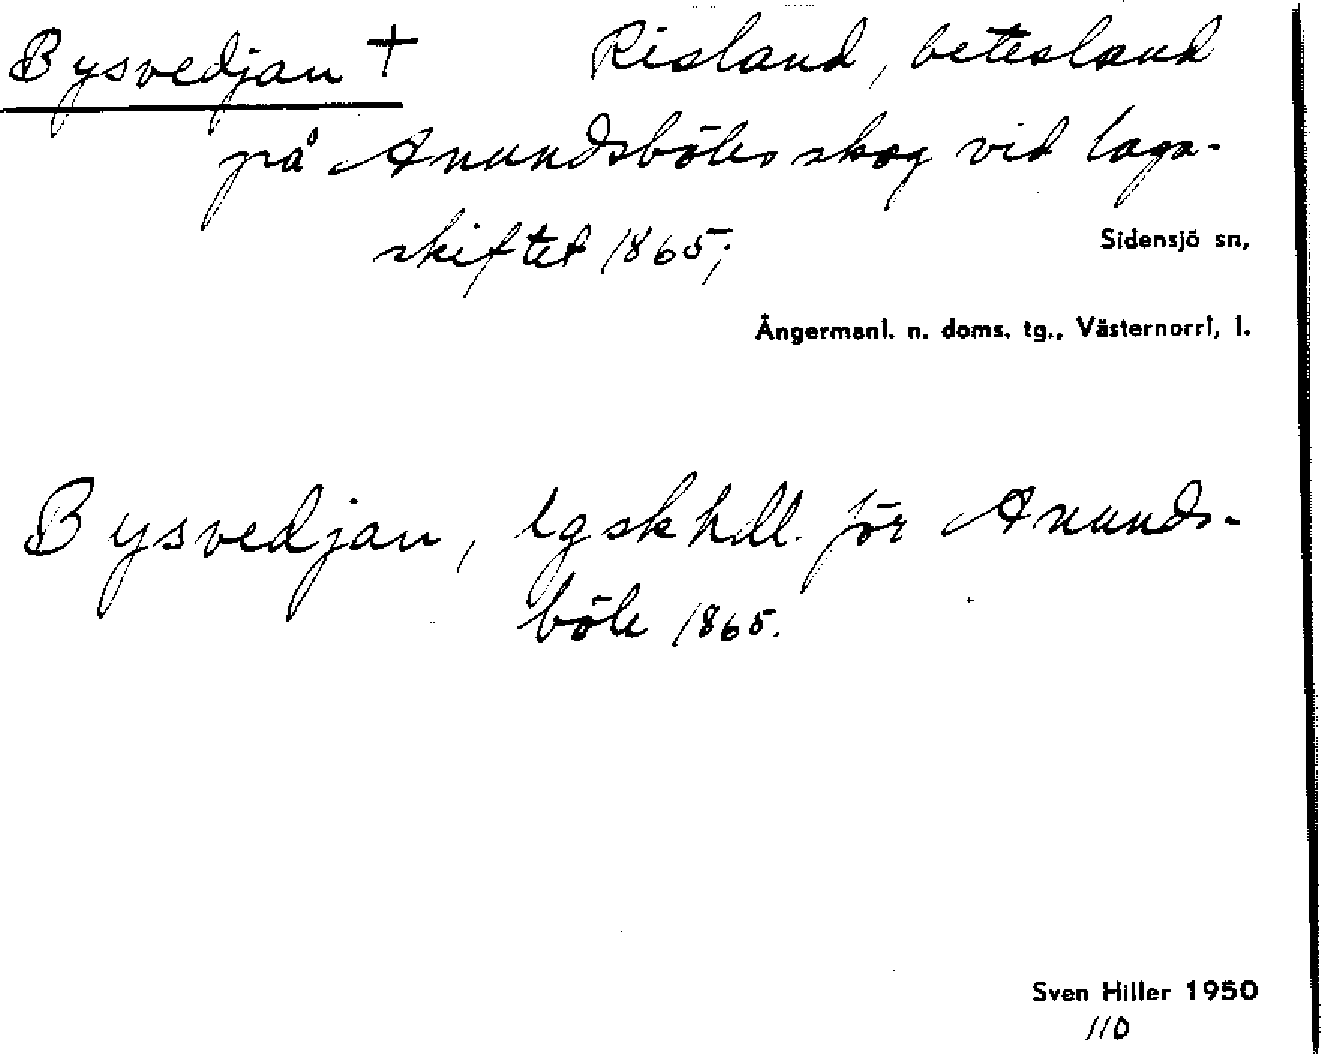 Bysvedjan † Risland, betesland
på Anundsböles skog vid laga-
skiftet 1865;
Sidensjö sn,
Ångermanl. n. doms. tg., Västernorrl, l.
Bysvedjan, lgskhdl. för Anunds-
böle 1865.
Sven Hiller 1950
110